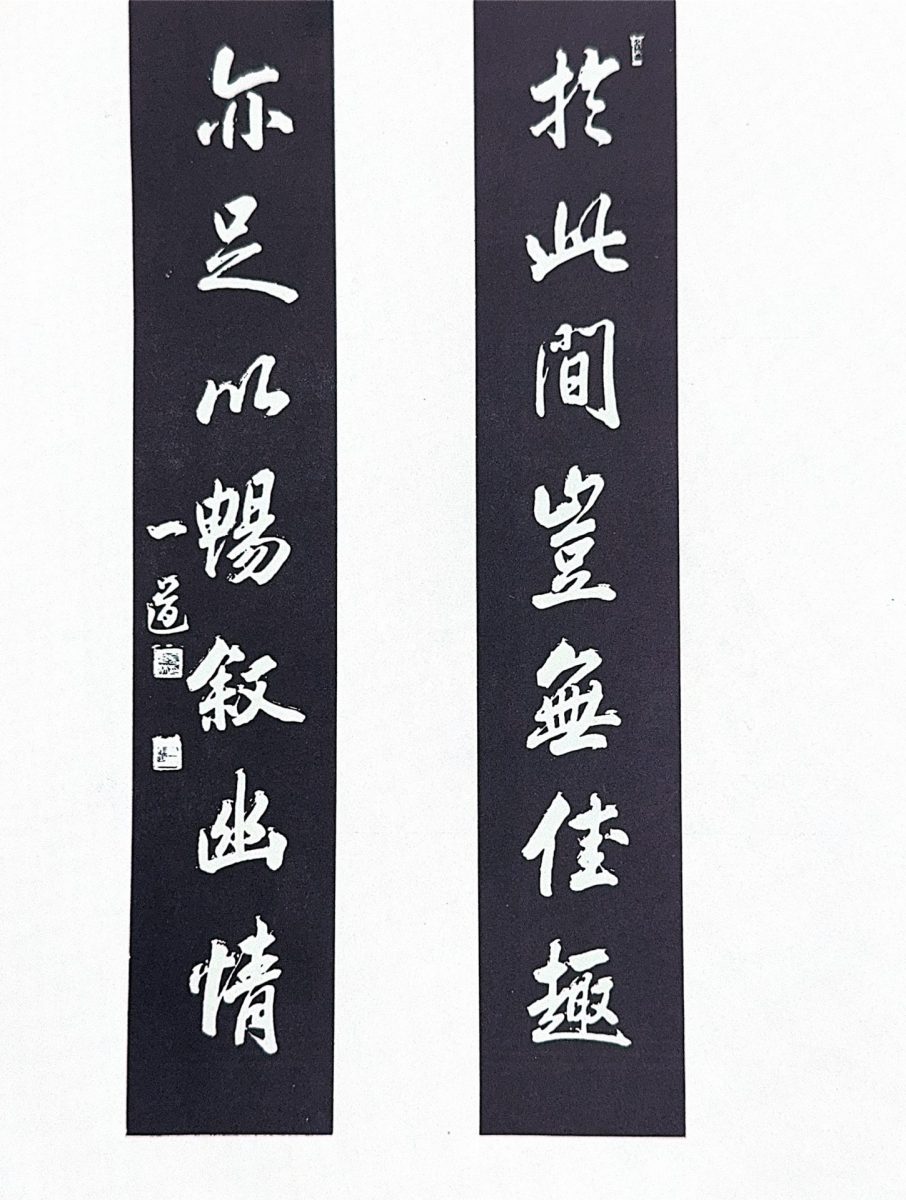 於此間豈無佳趣
亦足以暢敘幽情
一道